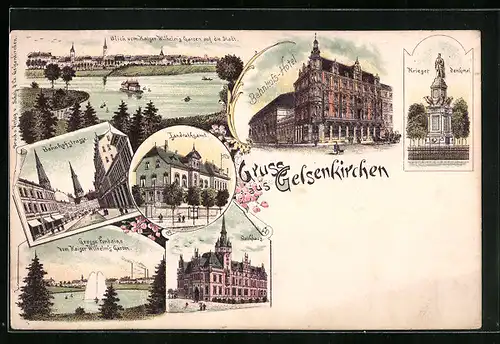 Blick vom Kaiser Wilhelm's Garten auf die Stadt.
Bahnhofs-Hotel
Krieger Denkmal
Bahnhofstrasse
Landrathsamt
Gruss
aus Gelsenkirchen
Grosse Fontaine
vom Kaiser Wilhelm's Garten.